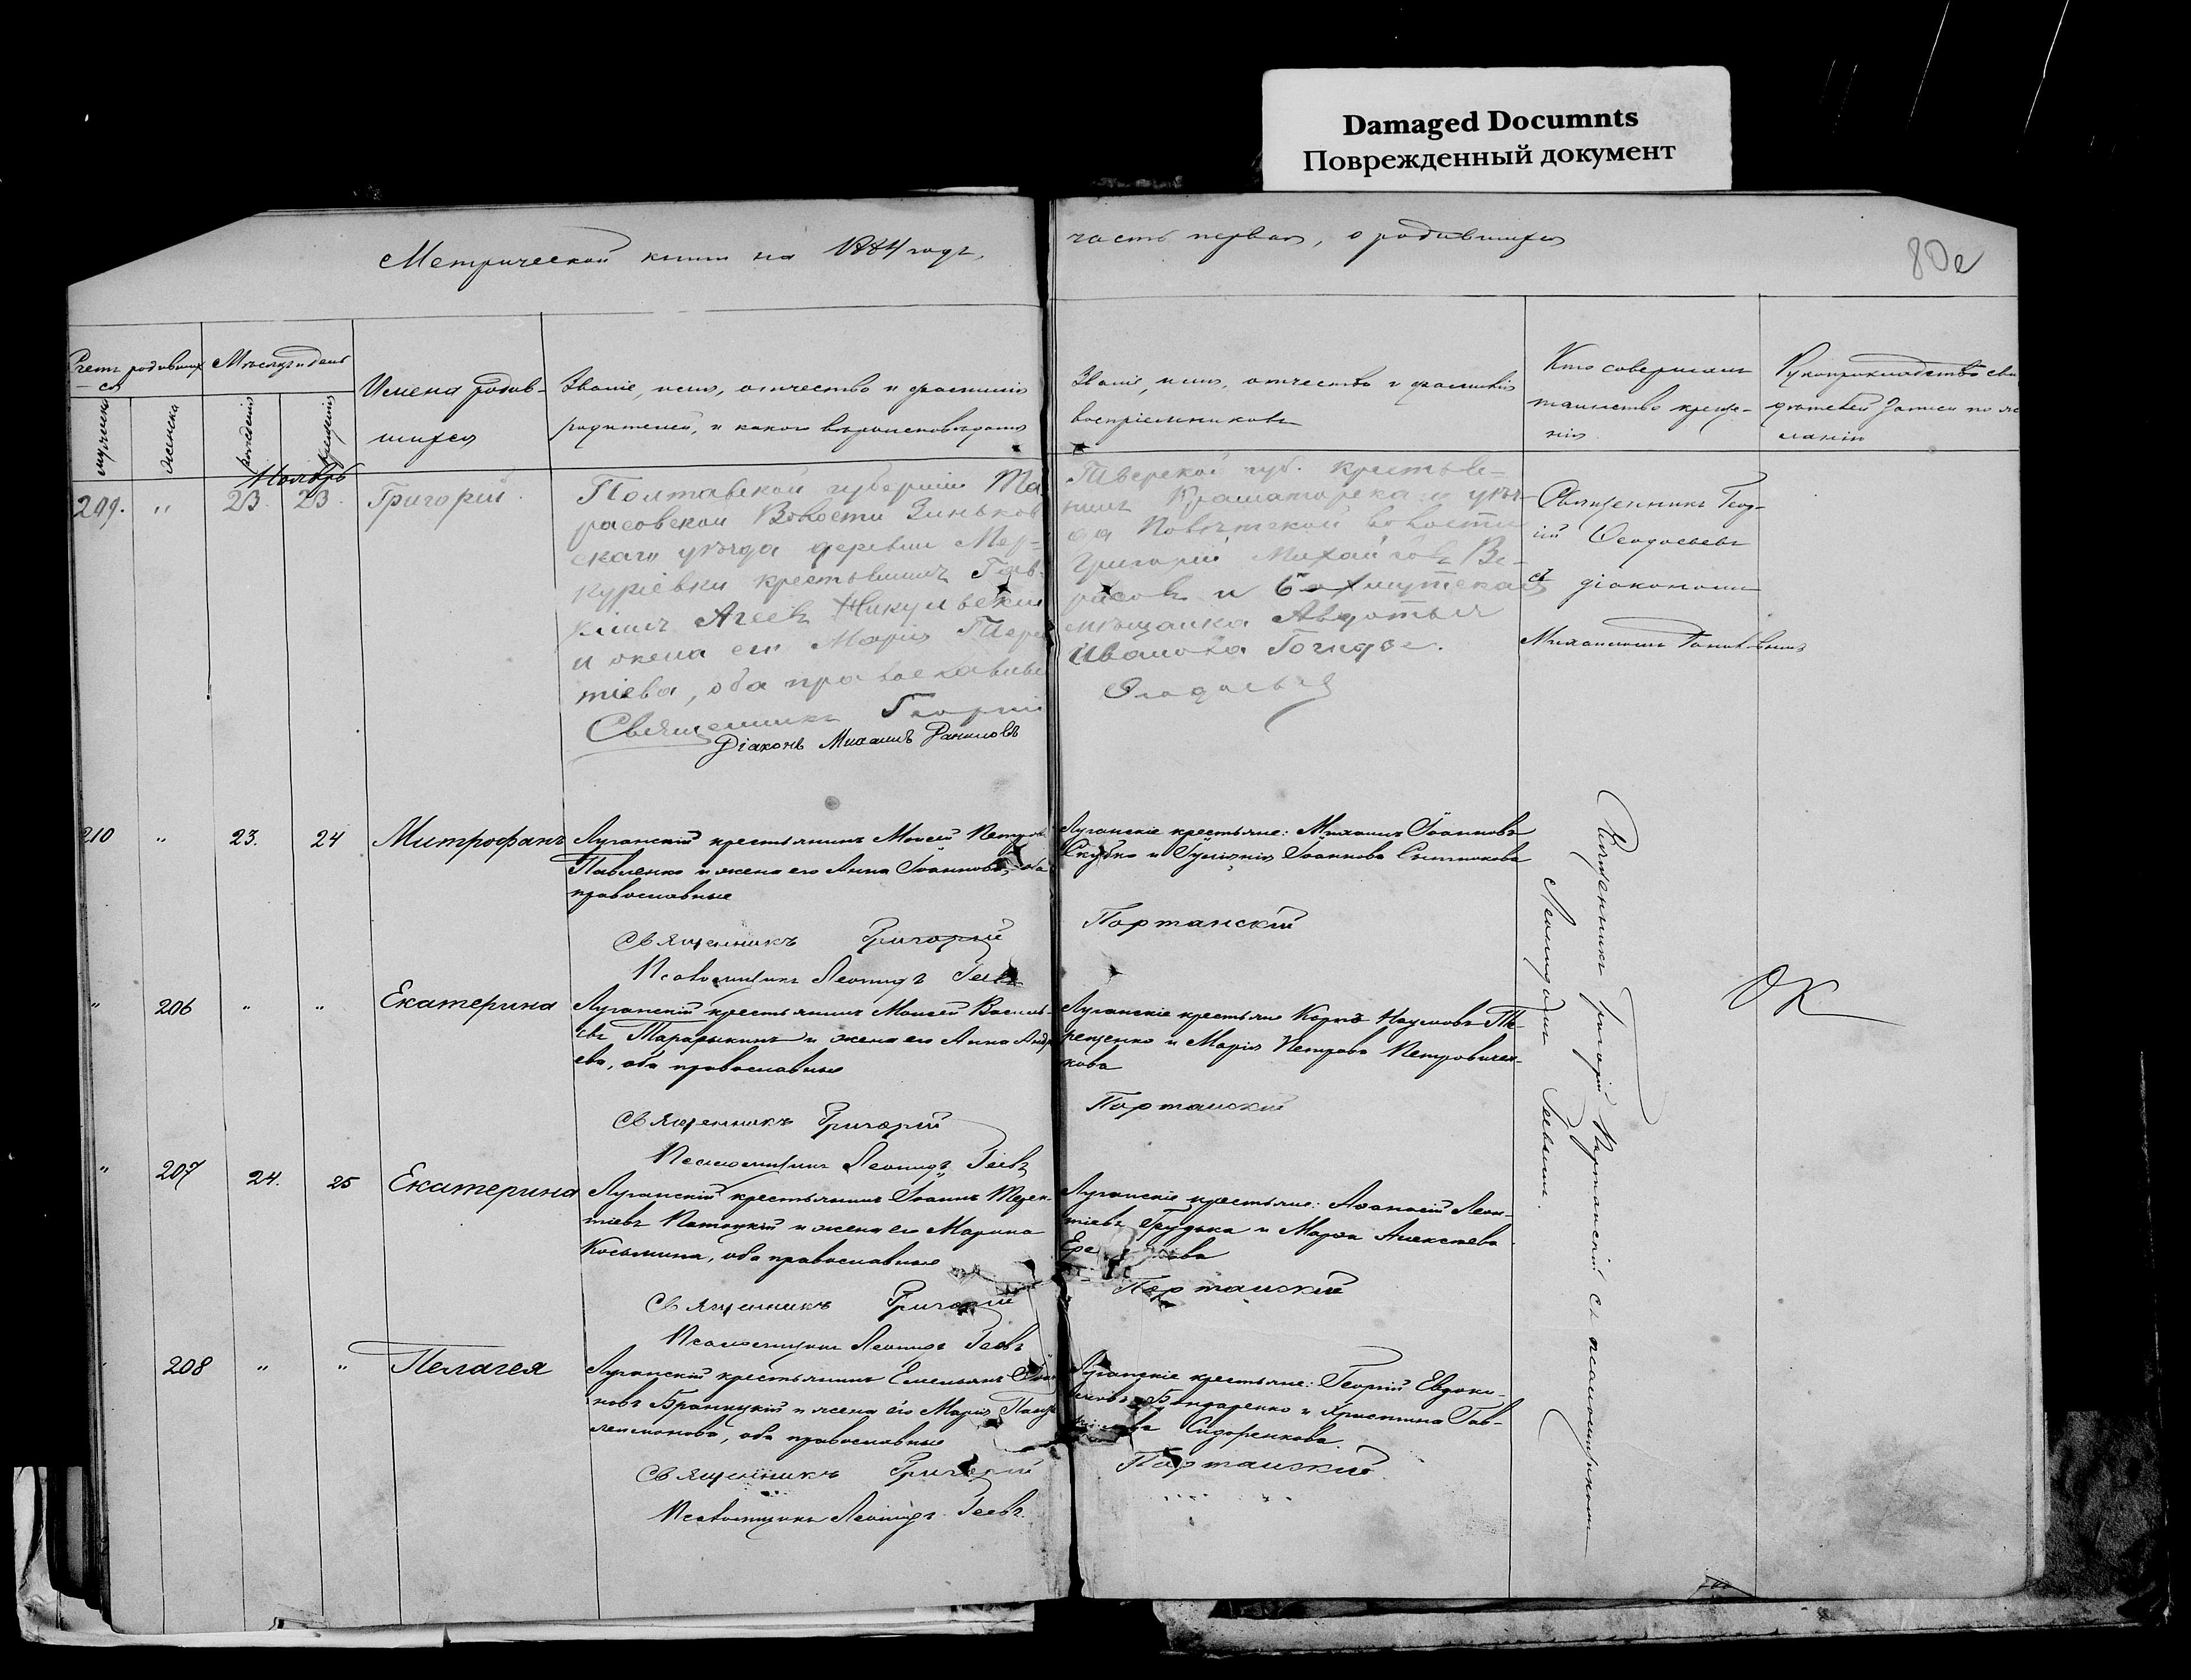 Damaged Documnts
Поврежденный документ
Метрической книги на 1884 годъ,
часть первая, о родившихся
80
Счетъ родивших
ся
Мѣсяцъ и день
мужска
женска
рожденія
крещенія
Имена родив-
шихся
Званіе, имя, отчество и фамилія
родителей, и какого вѣроисповѣданія
Званіе, имя, отчество и фамилія
воспріемниковъ
Кто совершалъ
таинство креще-
нія
Рукоприкладство сви
дѣтелей записи по же
ланію
Ноябрь
209. " 23. 23. Григорій.
Полтавской губерніи Та
расовской Волости Зиньков
скаго уѣзда деревни Мер-
куріевки крестьянинъ
Агеевъ
и жена его Марія Терен
тіева, оба православные
Священникъ Георгій
Діаконъ Михаилъ Даниловъ
Тверской губ. крестья-
нинъ уѣз-
да волости
Григорій Михайловъ
и Бахмутская
мѣщанка Авдотья
Иванова
Ѳеодосьевъ
Священникъ Геор-
гій Ѳеодосьевъ
съ діакономъ
Михаиломъ
210 " 23. 24 Митрофанъ
Луганскій крестьянинъ Моисей Петровъ
Павленко и жена его Анна Іоаннова, оба
православные
Священникъ Григорій
Псаломщикъ Леонидъ Геевъ
Луганскіе крестьяне: Михаилъ Іоанновъ
Скубко и Іоаннова
Портанскій
" 206 " " Екатерина
Луганскій крестьянинъ Моисей Василь-
евъ Тарарыкинъ и жена его Анна Андре
ева, оба православные
Священникъ Григорій
Псаломщикъ Леонидъ Геевъ
Луганскіе крестьяне Карпъ Наумовъ Те-
рещенко и Марія Петрова Петровичен-
кова
Портанскій
" 207 24. 25 Екатерина
Луганскій крестьянинъ Іоаннъ Терен-
тіевъ Потоцкій и жена его Марина
Косьмина, оба православные
Священникъ Григорій
Псаломщикъ Леонидъ Геевъ
Луганскіе крестьяне: Аѳанасій Леон-
тіевъ Грудька и Марѳа Алексѣева
Портанскій
208 " " Пелагея
Луганскій крестьянинъ Емельянъ Іоан
новъ Браницкій и жена его Марія Панте
леимонова, оба православные
Священникъ Григорій
Псаломщикъ Леонидъ Геевъ.
Луганскіе крестьяне: Георгій Евдоки-
мовъ Бондаренко и Христина Гав-
Сидоренкова.
Портанскій.
Священникъ Григорій Портанскій съ псаломщикомъ
Леонидомъ Геевымъ.